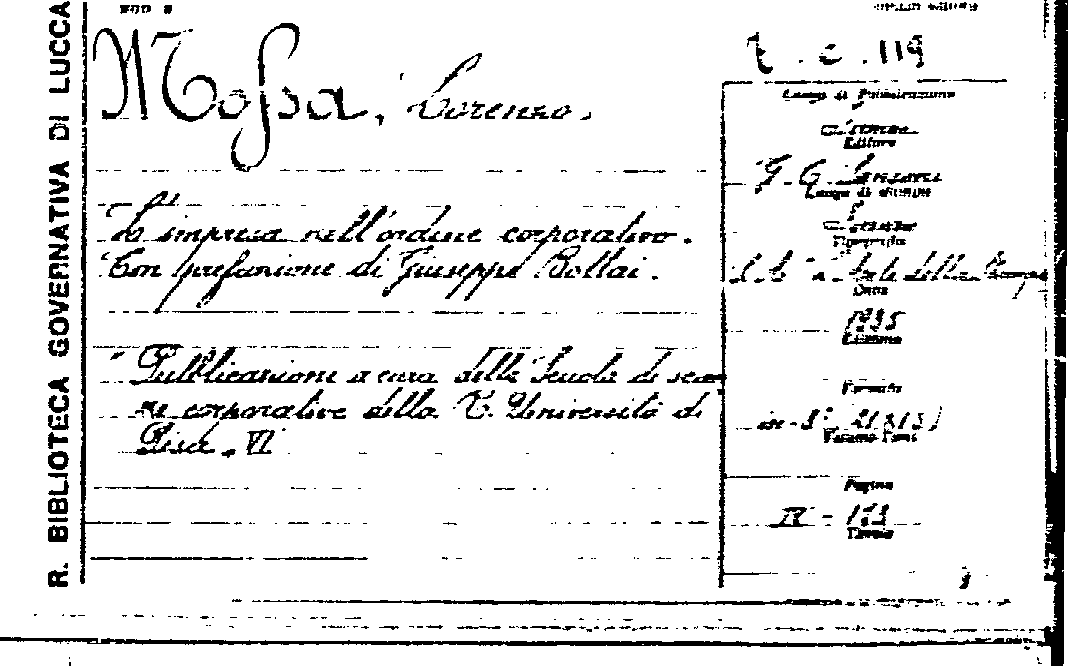 R. BIBLIOTECA GOVERNATIVA DI LUCCA
Mossa, Lorenzo.
L'impresa nell'ordine corporativo.
Con prefazione di Giuseppe Bottai.
Pubblicazione a cura della Scuola di scien
ze corporative della R. Università di
Pisa. VI
t. c. 119
Luogo di Pubblicazione
Firenze
Editore
G. C. Sansoni
Luogo di stampa
Firenze
Tipografia
della Stampa
Data
1935
Volume
Formato
in-8°
Pagine
IV - 173
Tavole